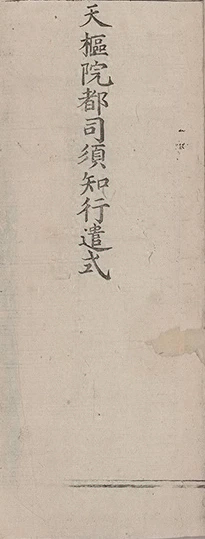 天樞院都司須知行遣式